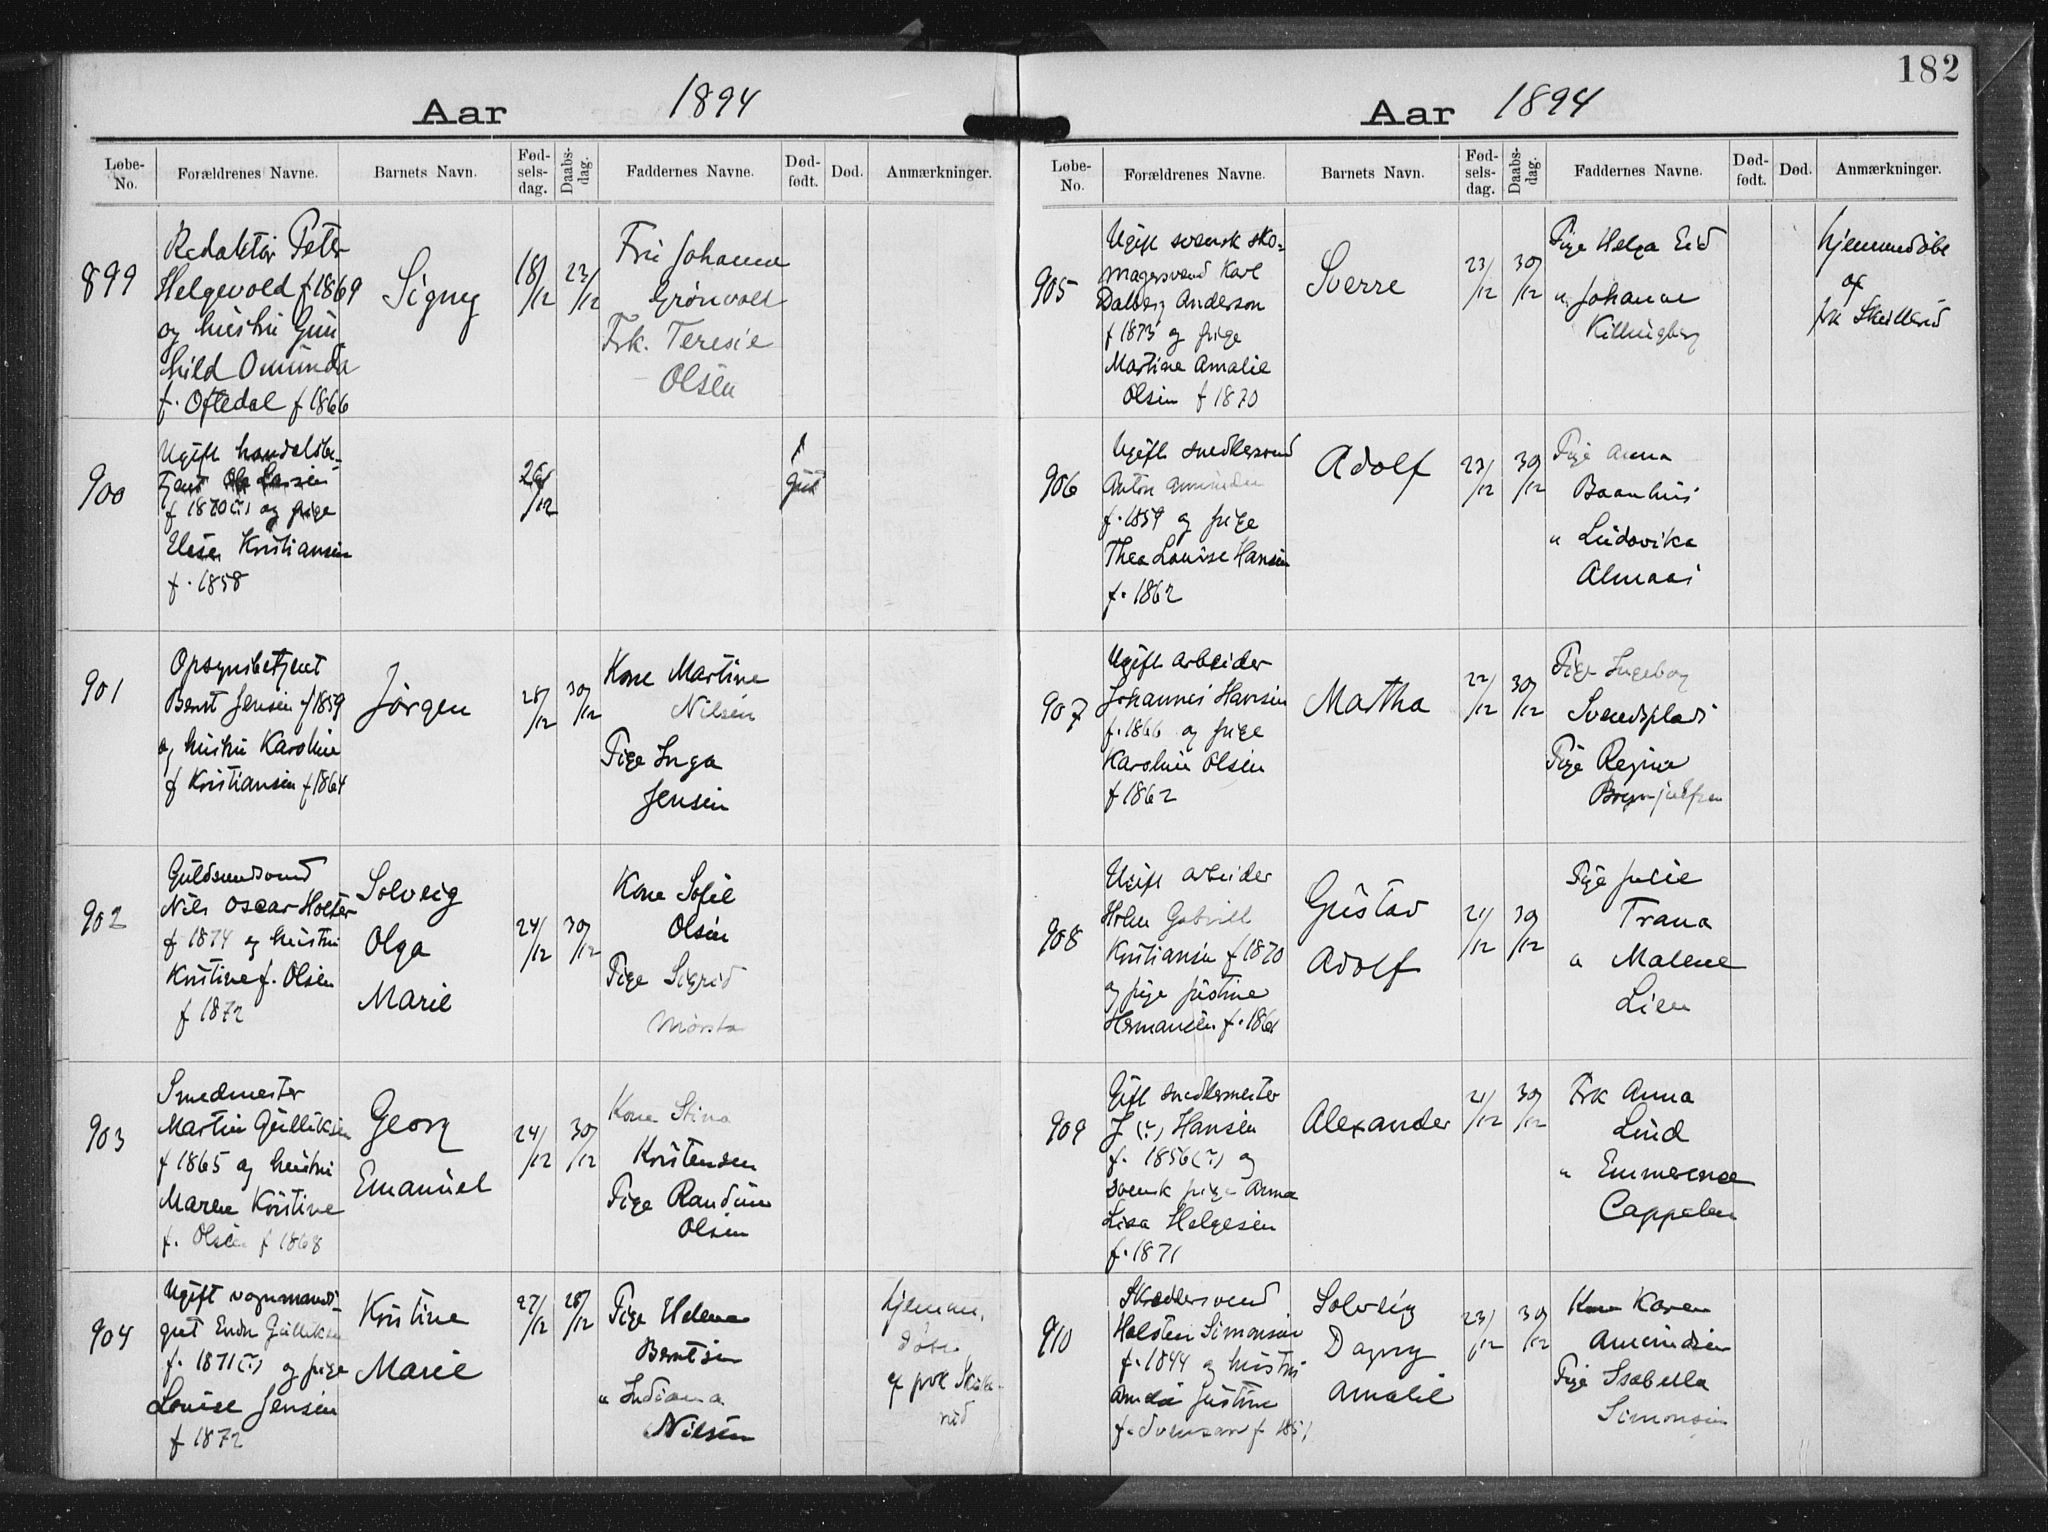 Aar 1894
Løbe-No. Forældrenes Navne. Barnets Navn. Fød-sels-dag. Daabs-dag. Faddernes Navne. Død-født. Død. Anmærkninger.
899
Redaktør Peter
Helgevold f 1869
og hustru Gun
hild Omunda
f. Oftedal f 1866
Signy
18/12
23/12
Fru Johanne
Grönvold
Frk. Teresie
Olsen
900
Ugift handelsbe-
tjent Ole Larsen
f 1870(?) og pige
Elise Kristiansen
f. 1858
26/12
1
gut
901
Opsynsbetjent
Bernt Jensen f 1859
og hustru Karoline
f Kristiansen f 1864
Jörgen
28/12
30/12
Kone Martine
Nilsen
Pige Inga
Jensen
902
Guldsmedsvend
Nils Oscar Holter
f 1874 og hustru
Kristine f. Olsen
f 1872
Solveig
Olga
Marie
24/12
30/12
Kone Sofie
Olsen
Pige Sigrid
Mörsta
903
Smedmester
Martin Gulliksen
f 1865 og hustru
Maren Kristine
f. Olsen f 1868
Georg
Emanuel
24/12
30/12
Kone Stina
Kristensen
Pige Randine
Olsen
904
Ugift vognmands-
gut Endr Gulliksen
f. 1871(?) og pige
Louise Jensen
f 1872
Kristine
Marie
27/12
28/12
Pige Helene
Berntsen
" Indiana
Nilsen
hjemme
döbt
af frk
182
Aar 1894
Løbe-No. Forældrenes Navne. Barnets Navn. Fød-sels-dag. Daabs-dag. Faddernes Navne. Død-født. Død. Anmærkninger.
905
Ugift svensk sko-
magersvend Karl
Dalberg Anderson
f 1873 og pige
Martine Amalie
Olsen f 1870
Sverre
23/12
30/12
Pige Helga Eid
" Johanne
Killingberg
hjemmedöbt
af
frk
906
Ugift snedkersvend
Anton Amundsen
f. 1859 og pige
Thea Louise Hansen
f. 1862
Adolf
23/12
30/12
Pige Anna
Baanhus
" Ludovika
Almaas
907
Ugift arbeider
Johannes Hansen
f. 1866 og pige
Karoline Olsen
f 1862
Martha
22/12
30/12
Pige Ingeborg
Svendsplads
Pige Regine
Brynjulfsen
908
Ugift arbeider
Holm Gabriell
Kristiansen f 1870
og pige Justine
Hermansen f. 1861
Gustav
Adolf
21/12
30/12
Pige Julie
Trana
" Malene
Lien
909
Gift snedkermester
J (?) Hansen
f. 1856(?) og
svensk pige Anna
Lisa Helgesen
f. 1871
Alexander
21/12
30/12
Frk Anna
Lund
" Emmerence
Cappelen
910
Skræddersvend
Halsten Simonsen
f. 1844 og hustru
Justine
f. Svensen f 1851
Solveig
Dagny
Amalie
23/12
30/12
Kone Karen
Amundsen
Pige Isabella
Simonsen